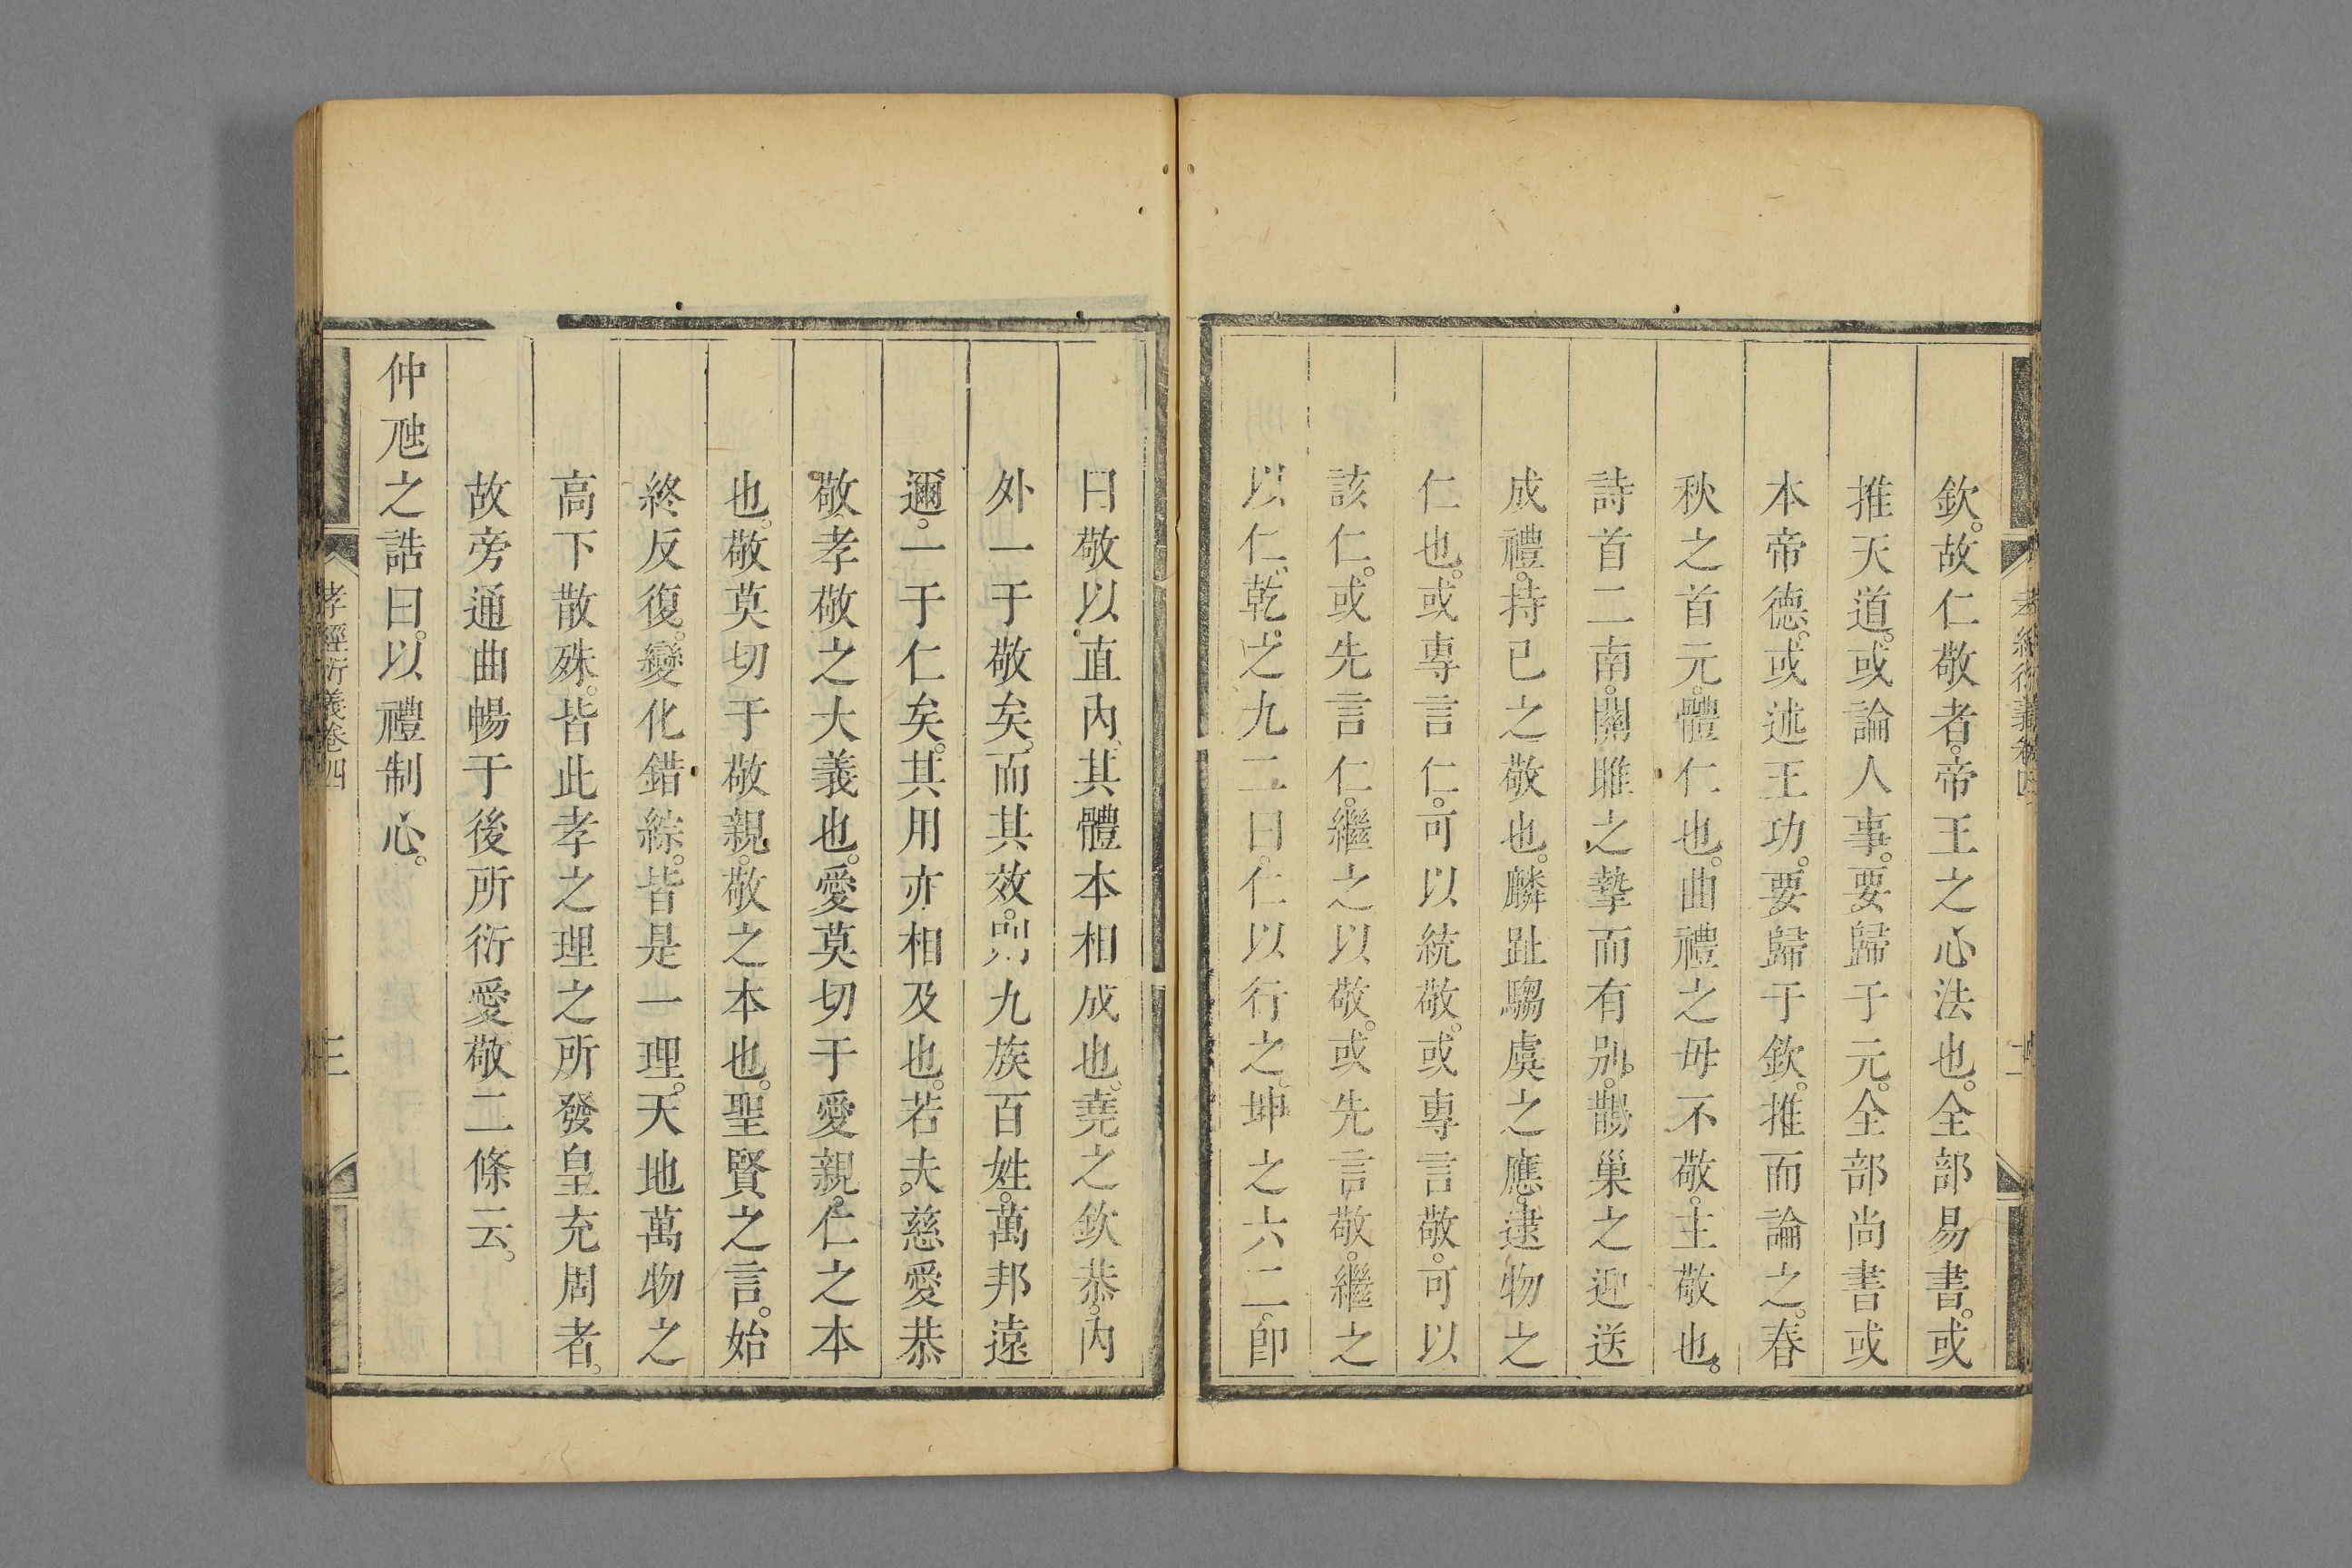 欽。故仁敬者。帝王之心法也。全部易書。或
推天道。或論人事。要歸于元。全部尚書或
本帝德。或述王功。要歸于欽。推而論之。春
秋之首元。體仁也。曲禮之毋不敬。主敬也。
詩首二南。關雎之摯而有別。鵲巢之迎送
成禮。持己之敬也。麟趾騶虞之應。逮物之
仁也。或專言仁。可以統敬。或專言敬。可以
該仁。或先言仁。繼之以敬。或先言敬。繼之
以仁。乾之九二曰。仁以行之。坤之六二。卽
曰敬以直內。其體本相成也。堯之欽恭。內
外一于敬矣。而其效。九族百姓。萬邦遠
邇。一于仁矣。其用亦相及也。若夫。慈愛恭
敬。孝敬之大義也。愛莫切于愛親。仁之本
也。敬莫切于敬親。敬之本也。聖賢之言。始
終反復。變化錯綜。皆是一理。天地萬物之
高下散殊。皆此孝之理之所發皇充周者。
故旁通曲暢于後所衍愛敬二條云。
仲虺之誥曰。以禮制心。
孝經衍義卷四
三